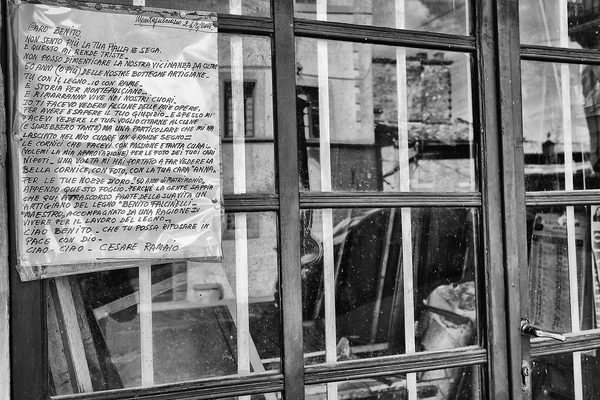 Montepulciano
CARO BENITO.
NON SENTO PIÙ LA TUA PIALLA NE SEGA.
E QUESTO MI RENDE TRISTE.
NON POSSO DIMENTICARE LA NOSTRA VICINANZA DA OLTRE
50 ANNI (O PIÙ) DELLE NOSTRE BOTTEGHE ARTIGIANE.
TU CON IL LEGNO. IO CON RAME.
E STORIA PER MONTEPULCIANO.
E RIMARRANNO VIVE NEI NOSTRI CUORI.
IO TI FACEVO VEDERE ALCUNE DELLE MIE OPERE,
PER AVERE E SAPERE IL TUO GIUDIZIO. E SPESSO MI
FACEVI VEDERE LE TUE. VOGLIO CITARNE ALCUNE
(E SAREBBERO TANTE) MA UNA PARTICOLARE CHE MI HA
LASCIATO NEL MIO CUORE UN GRANDE SEGNO=
LE CORNICI CHE FACEVI CON PASSIONE E TANTA CURA.
(VOLEVI LA MIA APPROVAZIONE) PER LE FOTO DEI TUOI CARI
NIPOTI. UNA VOLTA MI HAI PORTATO A FAR VEDERE LA
BELLA CORNICE, CON FOTO, CON LA TUA CARA "ANNA,
PER LE TUE NOZZE D'ORO. 50 LIRE DI MATRIMONIO.
APPENDO QUESTO FOGLIO. PERCHE LA GENTE SAPPIA
CHE QUI A TRASCORSO PARTE DELLA SUA VITA, UN
ARTIGIANO DEL LEGNO "BENITO
MAESTRO, ACCOMPAGNATO DA UNA RAGIONE =
VIVERE PER IL LAVORO DEL LEGNO.
CIAO BENITO. CHE TU POSSA RIPOSARE IN
PACE CON DIO.
CIAO. CIAO. CESARE